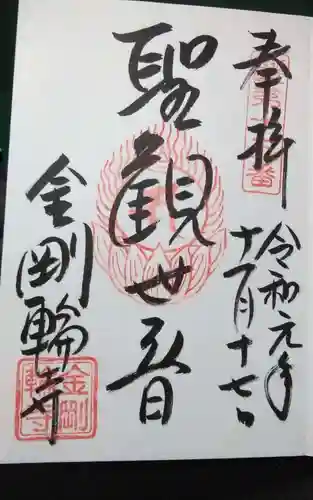 奉拝
令和元年
十一月十七日
聖観世音
金剛輪寺
金剛
輪寺